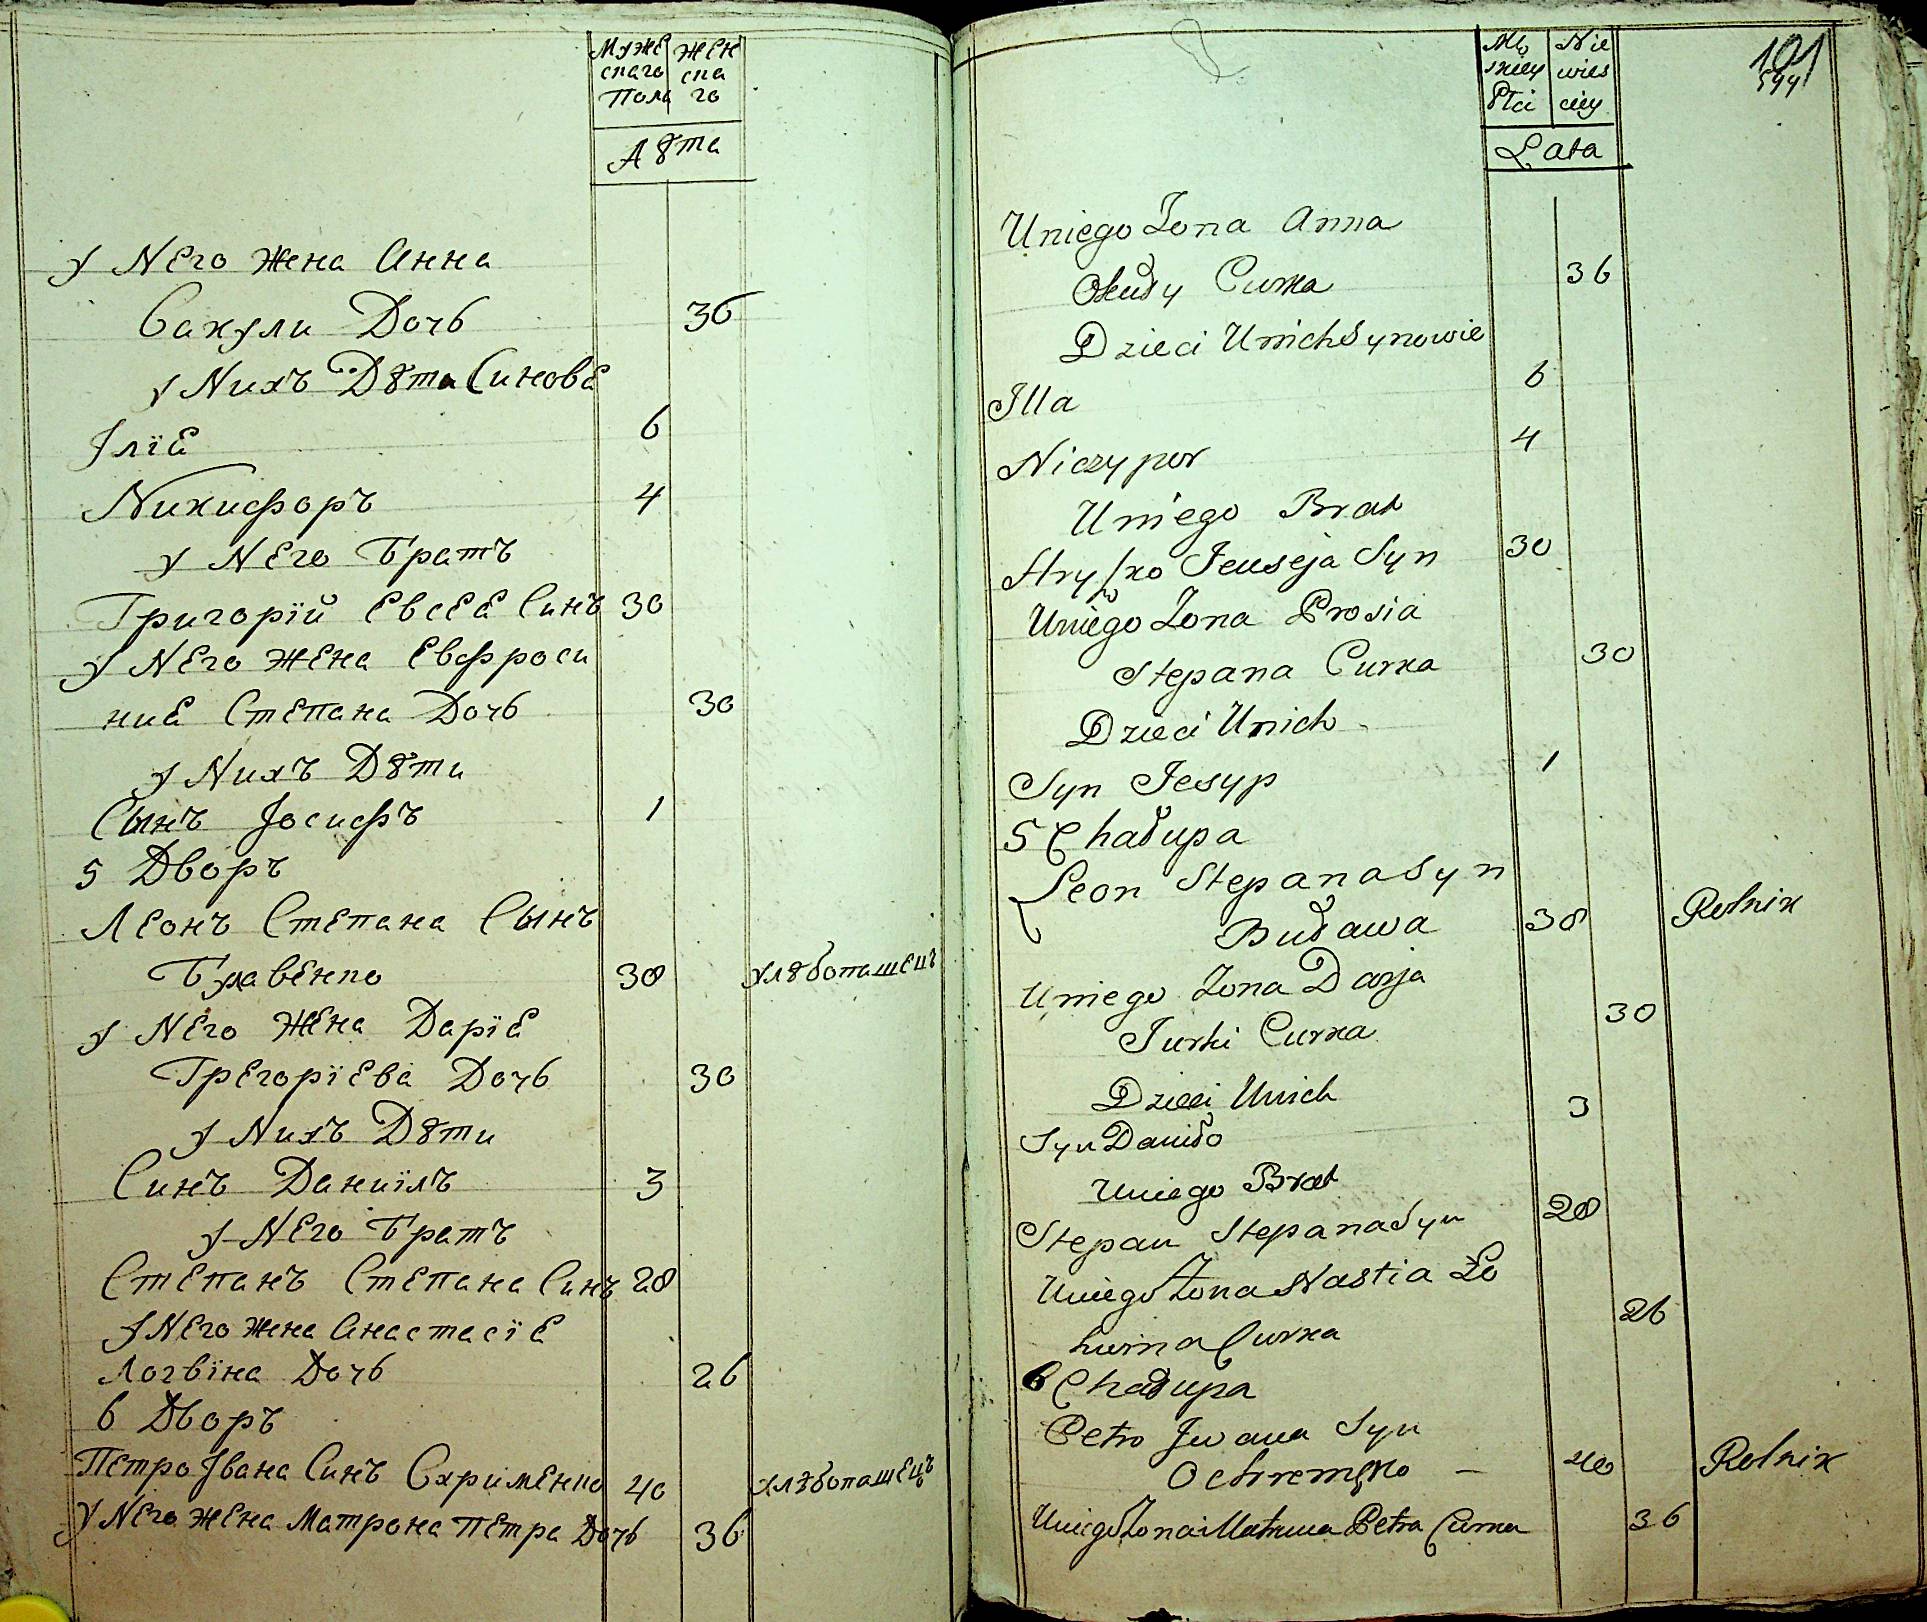 МужЕ
скаго
Пола
жЕн
ска
го
Лѣта
у НЕго жена Анна
Вакули Дочь 36
у Нихъ Дѣти Синовѣ
Iлїя 6
Никифоръ 4
у НЕго Братъ
Григорїй ЕвсЕя Синъ 30
у НЕго жЕна Евфроси
ния СтЕпана Дочь 30
у Нихъ Дѣти
Сынъ Iосифъ 1
5 Дворъ
ЛЕонъ СтЕпана Сынъ
БулавЕнко 38 хлѣбопашЕцъ
у НЕго жЕна Дарїя
ГрЕгорїЕва Дочь 30
у Нихъ Дѣти
Синъ Даниїлъ 3
у НЕго Братъ
СтЕпанъ СтЕпана Синъ 28
у НЕго жена Анастасїя
Логвїна Дочь 26
6 Дворъ
ПЕтро Iвана Синъ ОхримЕнко 40 хлѣбопашЕцъ
у НЕго жЕна Матрона ПЕтра Дочь 36
Mę
skiey
Płci
Nie
wies
ciey
Lata
101
Uniego Zona Anna
Curka 36
Dzieci Unich Synowie
Illa 6
Niczypor 4
Uniego Brat
Hryćko Jeuseja Syn 30
Uniego Zona Prosia
Stepana Curka 30
Dzieci Unich
Syn Jesyp 1
5 Chałupa
Leon Stepana Syn
Buława 38 Rolnik
Uniego Zona Darja
Jurki Curka 30
Dzieci Unich
Syn Daniło 3
Uniego Brat
Stepan Stepana Syn 28
Uniego Zona Nastia Lo
hwina Curka 26
6 Chałupa
Petro Jwana Syn
Ochremęko — 40 Rolnik
Uniego Zona Matruna Petra Curka 36